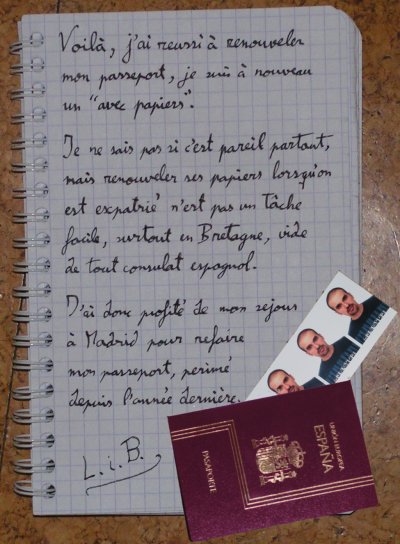 Voilà, j'ai reussi à renouveler
mon passeport, je suis à nouveau
un "avec papiers".
Je ne sais pas si c'est pareil partout,
mais renouveler ses papiers lorsqu'on
est expatrié n'est pas un tâche
facile, surtout en Bretagne, vide
de tout consulat espagnol.
J'ai donc profité de mon sejour
à Madrid pour refaire
mon passeport, périmé
depuis l'année dernière.
L.i.B.
UNION EUROPEA
ESPAÑA
PASAPORTE